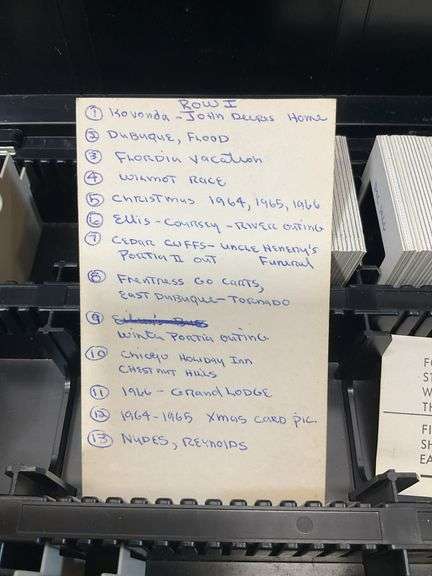 ROW I
① Kovonda - John Deeres Home
② DUBUQUE, FLOOD
③ FLORDIA VACATION
④ WILMOT RACE
⑤ CHRISTMAS 1964, 1965, 1966
⑥ ELLIS - COURSEY - RIVER OUTING
⑦ CEDAR CLIFFS - UNCLE HENERY'S
PORTIA II OUT Funeral
⑧ FRENTRESS GO CARTS,
EAST DUBUQUE - TORNADO
⑨
WINTER PORTIA OUTING
⑩ Chicago HOLIDAY INN
CHESTNUT HILLS
⑪ 1966 - GRAND LODGE
⑫ 1964-1965 XMAS CARD PIC.
⑬ NUDES, REYNOLDS
FO
ST
W
TH
FI
SH
EA